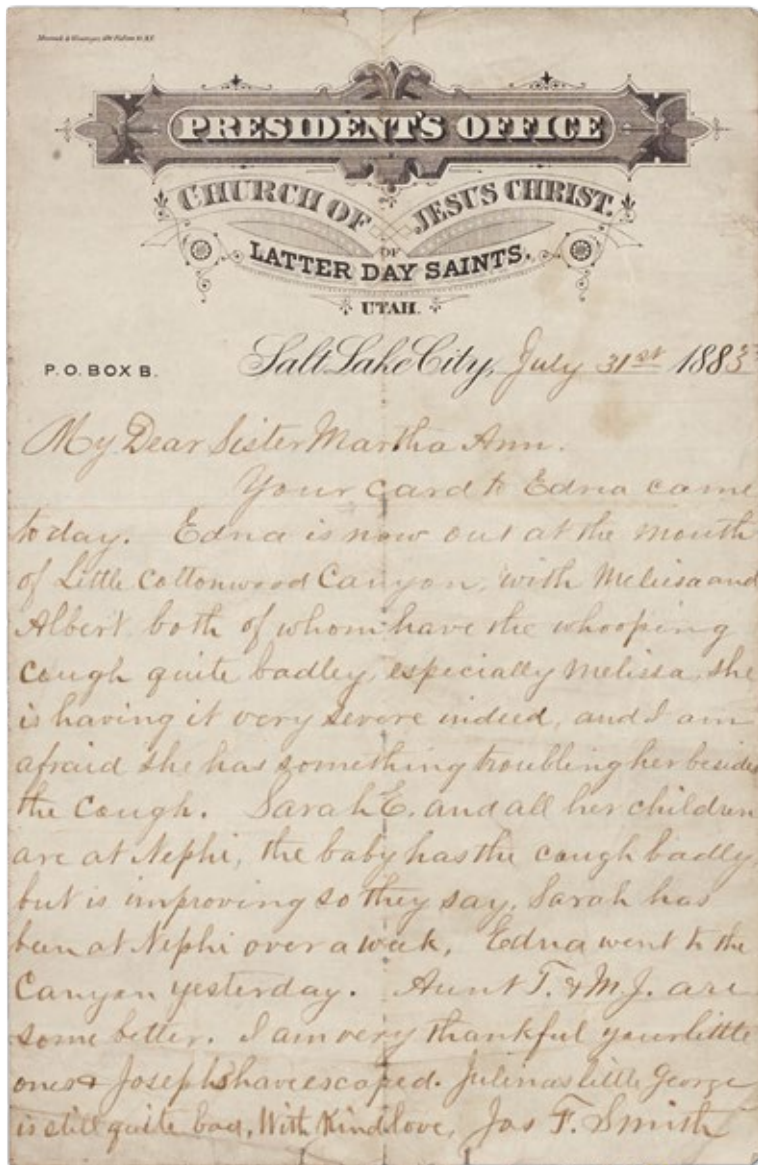 PRESIDENT'S OFFICE
CHURCH OF JESUS CHRIST.
OF
LATTER DAY SAINTS.
UTAH.
P.O. BOX B.
Salt Lake City, July 31st 1883
My Dear Sister Martha Ann.
Your card to Edna came
today. Edna is now out at the mouth
of Little Cottonwood Canyon, with Melissa and
Albert, both of whom have the whooping
cough quite badley, especially Melissa, she
is having it very severe indeed, and I am
afraid she has something troubling her beside
the cough. Sarah E. and all her children
are at Nephi, the baby has the cough badly,
but is improving so they say. Sarah has
been at Nephi over a week. Edna went to the
Canyon yesterday. Aunt T. & M.J. are
some better. I am very thankful your little
ones & Joseph's have escaped. Julina's little George
is still quite bad. With Kind love, Jos F. Smith